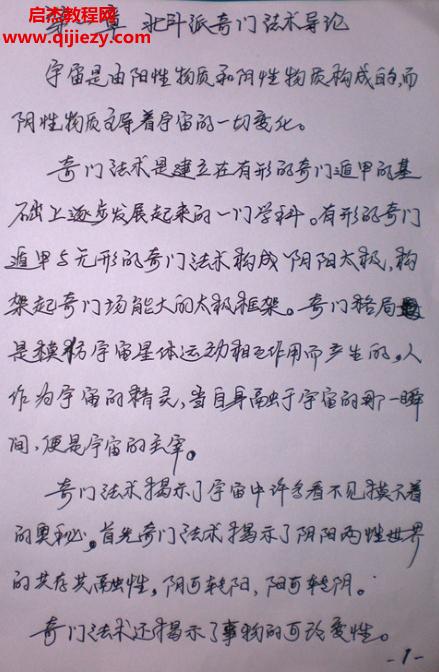 启杰易经网
www.qijiezy.com
第 章 北斗派奇门法术导论
宇宙是由阳性物质和阴性物质构成的,而
阴性物质主导着宇宙的一切变化。
奇门法术是建立在有形的奇门遁甲的基
础上逐步发展起来的一门学科。有形的奇门
遁甲与无形的奇门法术构成阴阳太极,构
架起奇门场能大的太极框架。奇门格局
是模仿宇宙星体运动相互作用而产生的。人
作为宇宙的精灵,当自身融于宇宙的那一瞬
间,便是宇宙的主宰。
奇门法术揭示了宇宙中许多看不见摸不着
的奥秘。首先奇门法术揭示了阴阳两性世界
的共存共融性,阴可转阳,阳可转阴。
奇门法术还揭示了事物的可论变性。
-1-